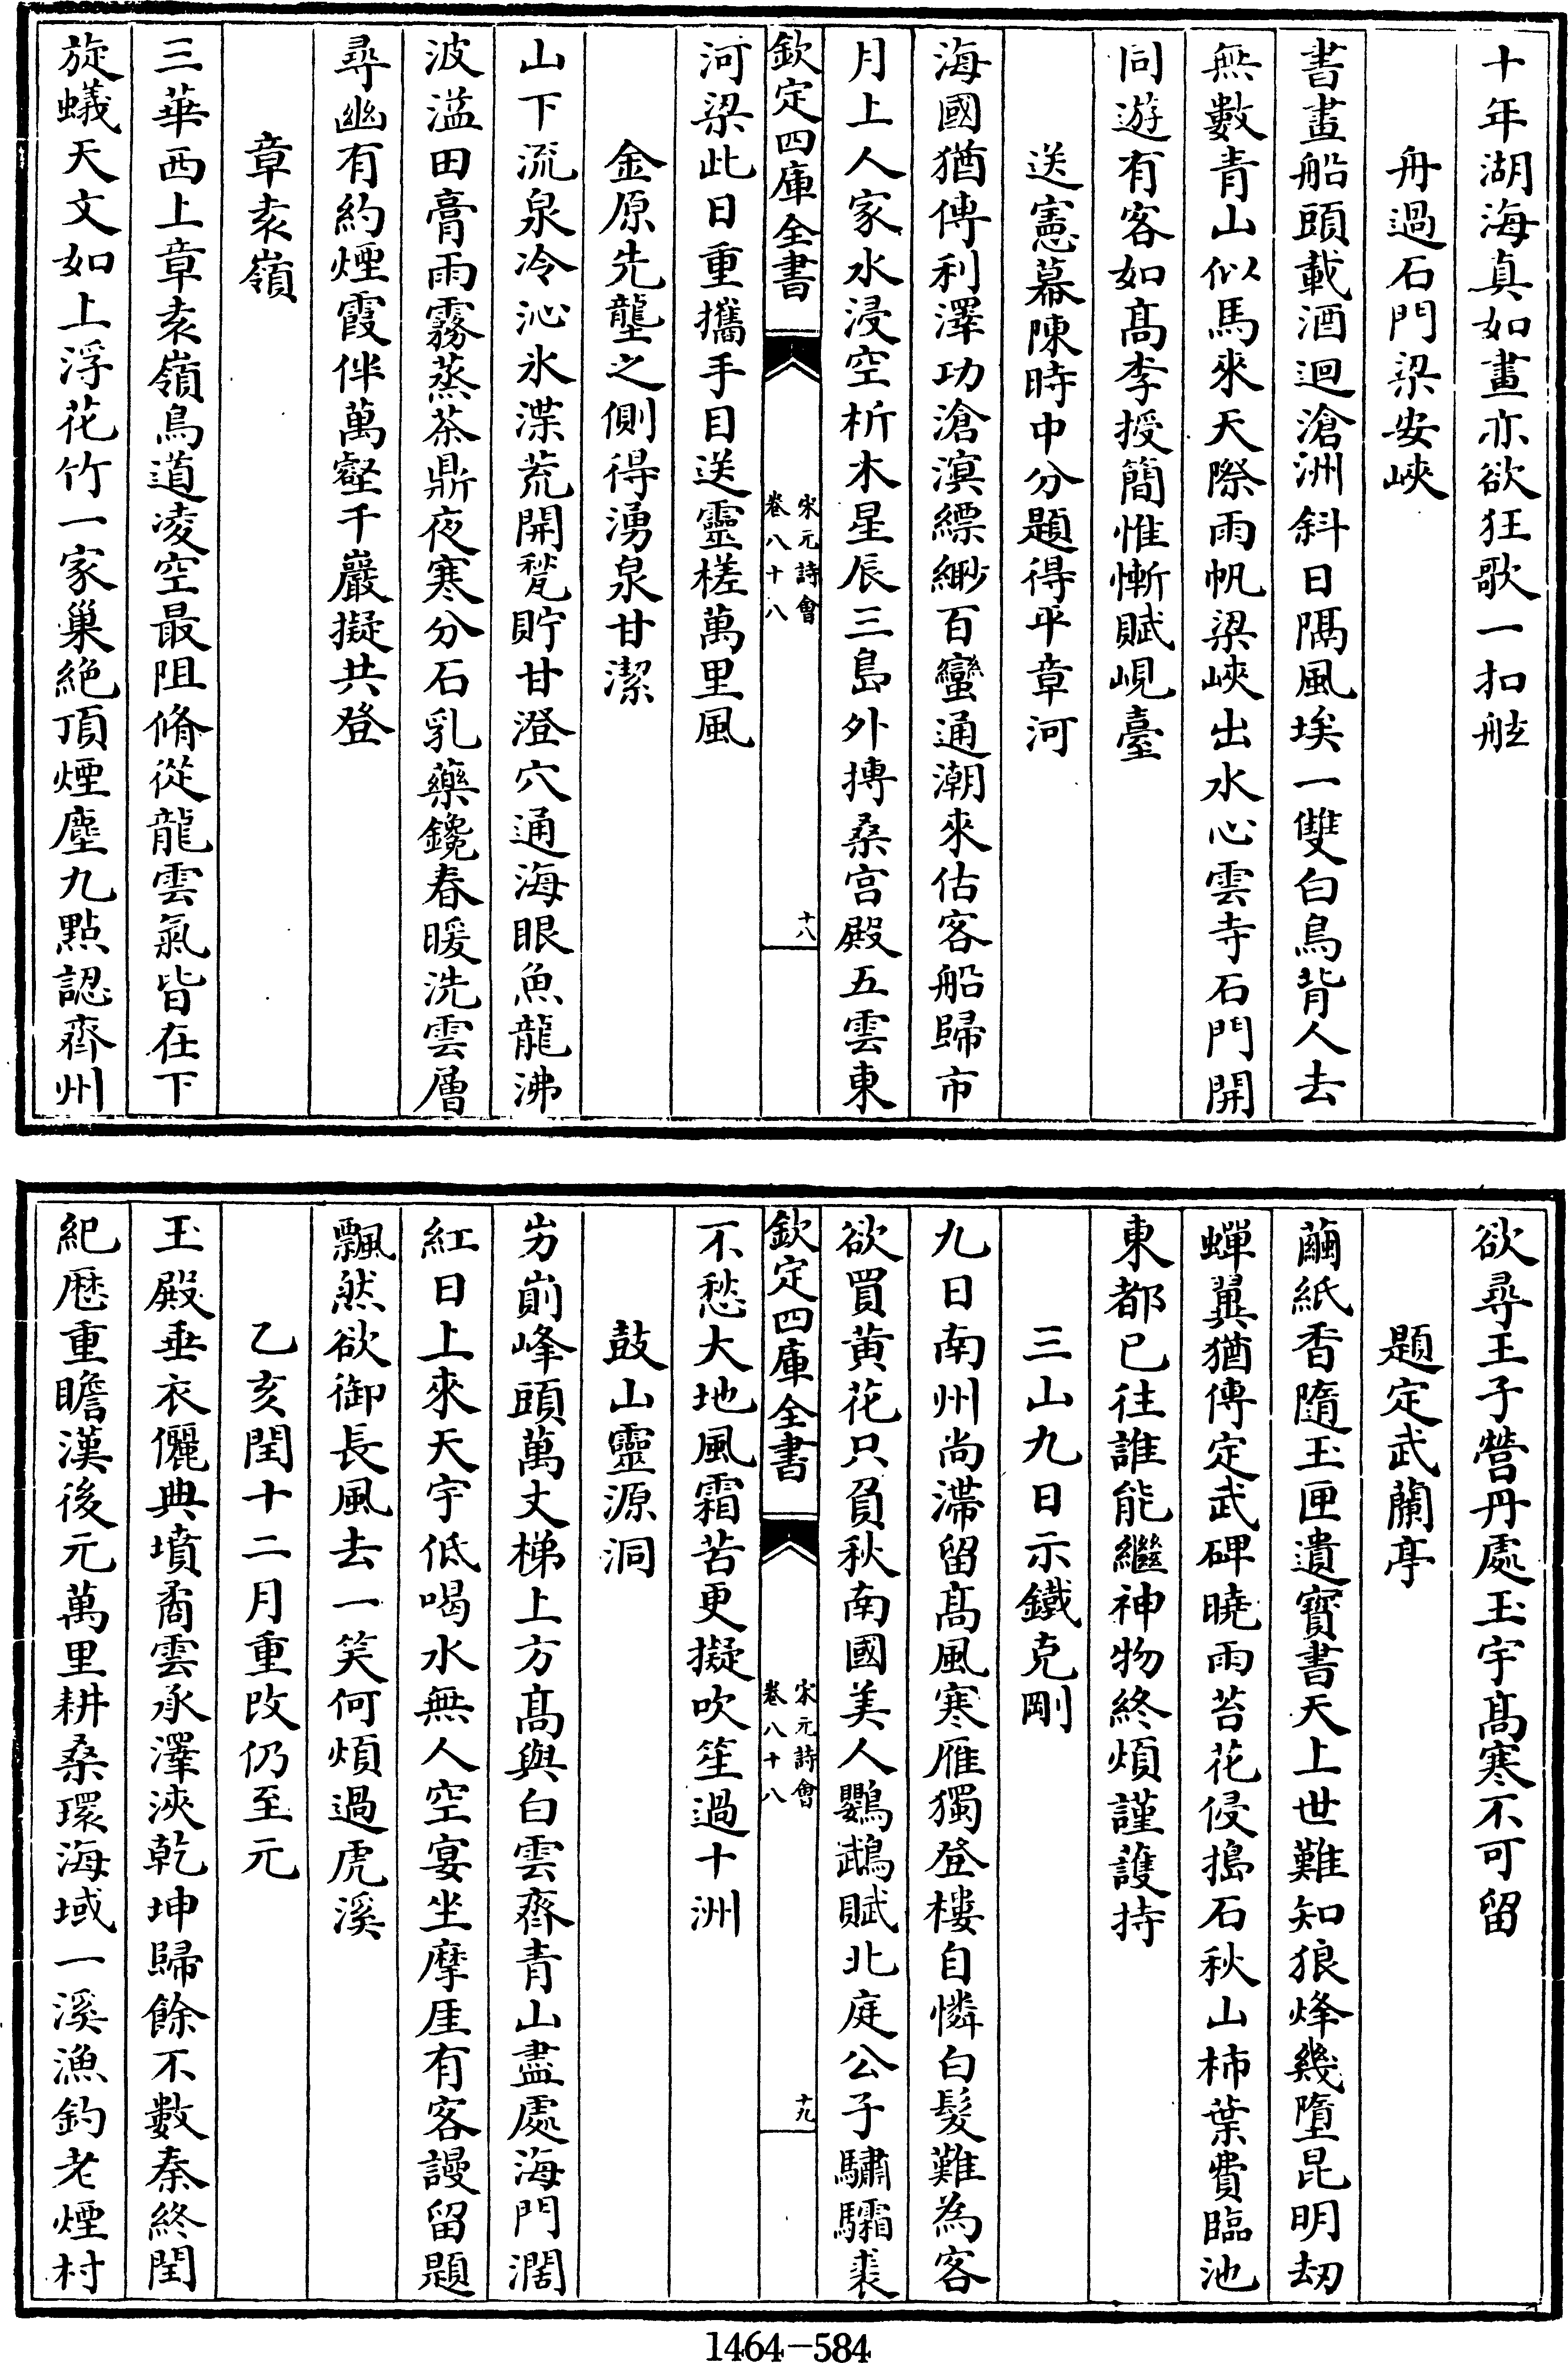 十年湖海真如畫亦欲狂歌一扣舷
舟過石門梁安峽
書畫船頭載酒迴滄洲斜日隔風埃一雙白鳥背人去
無數青山似馬來天際雨帆梁峽出水心雲寺石門開
同遊有客如髙李授簡惟慚賦峴臺
送憲幕陳時中分題得平章河
海國猶傳利澤功滄溟縹緲百蠻通潮來估客船歸市
月上人家水浸空析木星辰三島外摶桑宫殿五雲東
欽定四庫全書
宋元詩會
卷八十八
十八
河梁此日重攜手目送靈槎萬里風
金原先壟之側得湧泉甘潔
山下流泉冷沁氷渫荒開甃貯甘澄穴通海眼魚龍沸
波溢田膏雨霧蒸茶鼎夜寒分石乳藥鑱春暖洗雲層
尋幽有約煙霞伴萬壑千巖擬共登
章袁嶺
三華西上章袁嶺鳥道凌空最阻脩從龍雲氣皆在下
旋蟻天文如上浮花竹一家巢絶頂煙塵九點認齊州
欲尋王子營丹處玉宇髙寒不可留
題定武蘭亭
繭紙香隨玉匣遺寳書天上世難知狼烽幾墮昆明刼
蟬翼猶傳定武碑曉雨苔花侵搗石秋山柿葉費臨池
東都已往誰能繼神物終煩謹䕶持
三山九日示鐵克剛
九日南州尚滯留髙風寒雁獨登樓自憐白髮難為客
欲買黄花只負秋南國美人鸚鵡賦北庭公子驌驦裘
欽定四庫全書
宋元詩會
卷八十八
十九
不愁大地風霜苦更擬吹笙過十洲
鼓山靈源洞
屴崱峰頭萬丈梯上方髙與白雲齊青山盡處海門濶
紅日上來天宇低喝水無人空宴坐摩厓有客謾留題
飄然欲御長風去一笑何煩過虎溪
乙亥閏十二月重改仍至元
玉殿垂衣儷典墳矞雲承澤浹乾坤歸餘不數秦終閏
紀厯重瞻漢後元萬里耕桑環海域一溪漁釣老煙村
1464-584